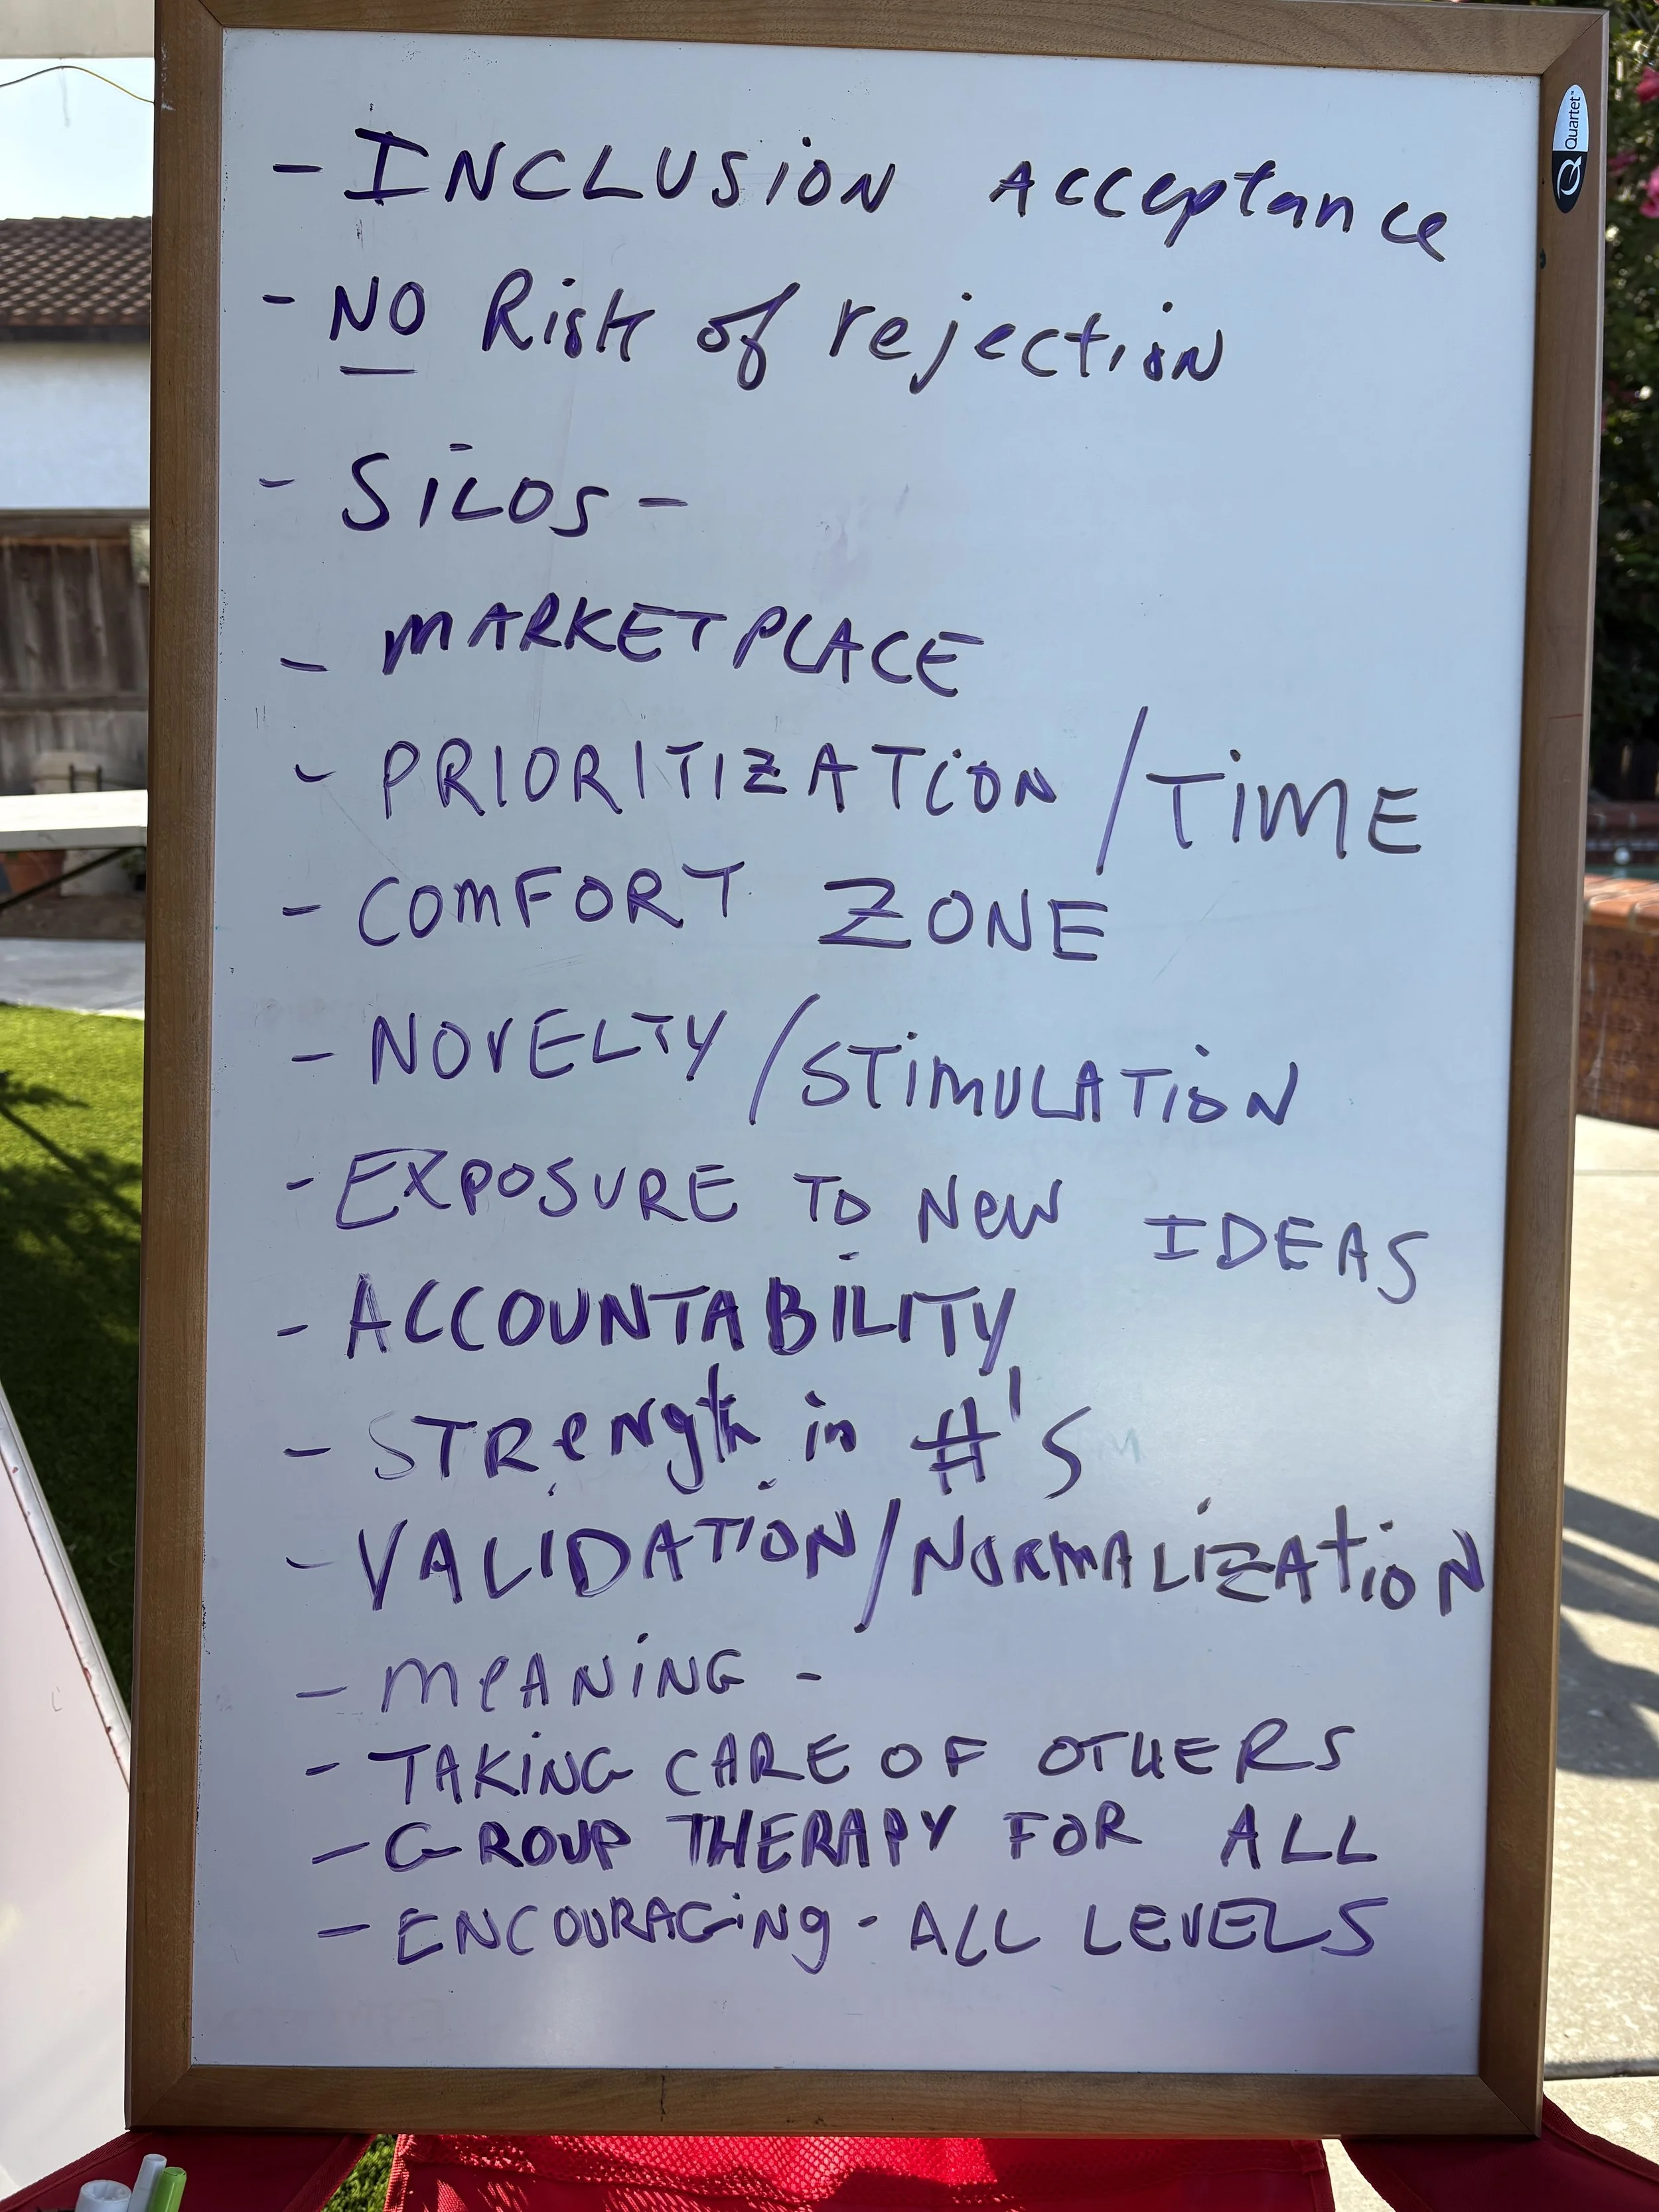 Quartet
- INCLUSION Acceptance
- NO Risk of rejection
- SILOS -
- MARKETPLACE
- PRIORITIZATION / TIME
- COMFORT ZONE
- NOVELTY / STIMULATION
- EXPOSURE TO NEW IDEAS
- ACCOUNTABILITY
- STRENgth in #'S
- VALIDATION / NORMALIZATION
- MEANING -
- TAKING CARE OF OTHERS
- GROUP THERAPY FOR ALL
- ENCOURAGING - ALL LEVELS